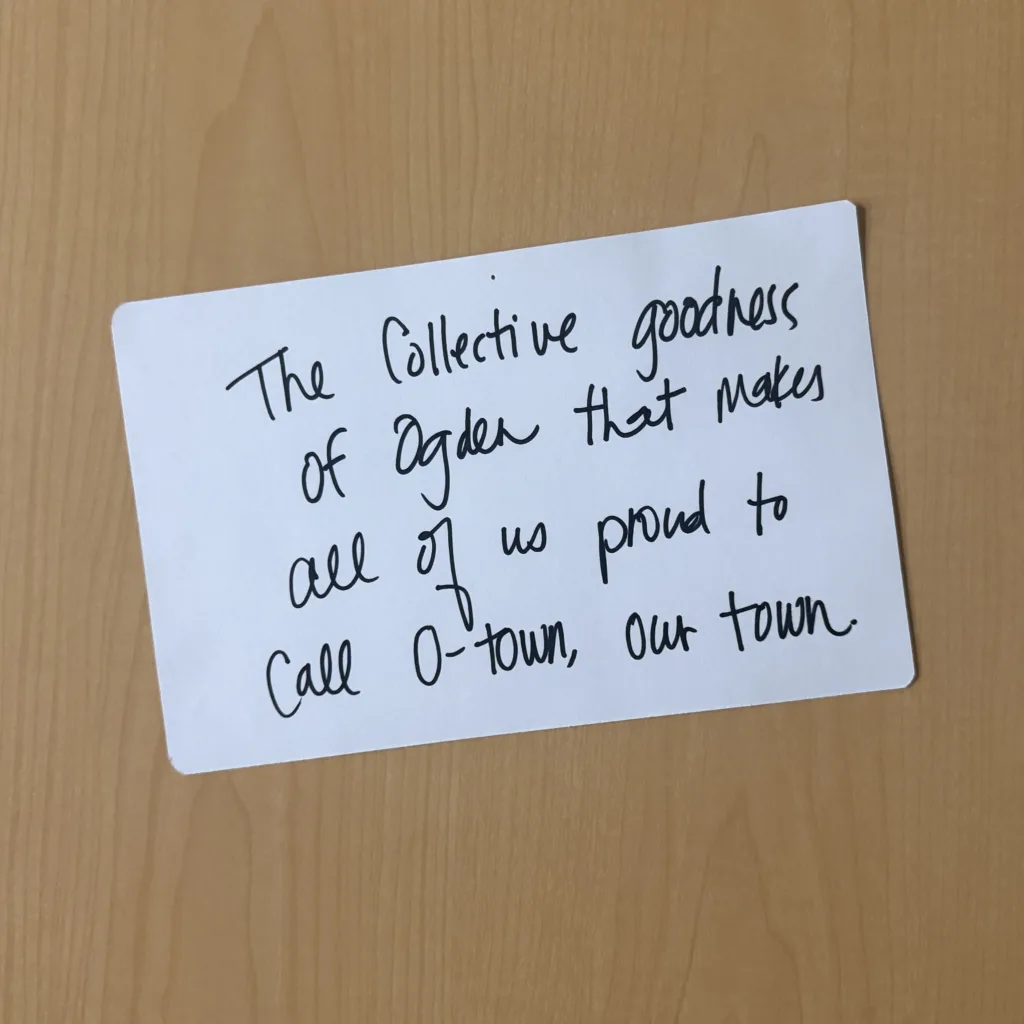 The Collective goodness
of Ogden that makes
all of us proud to
Call O-town, our town.